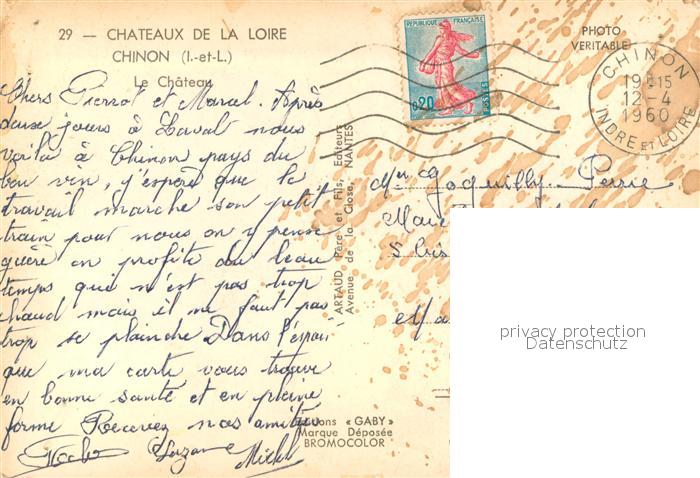 29 — CHATEAUX DE LA LOIRE
CHINON (I.-et-L.)
Le Château
Chers Pierrot et Marcel. Après
deux jours à Laval nous
voila à Chinon pays du
bon vin, j'espère que le
travail marche son petit
train pour nous on y pense
guère on profite du beau
temps qui n'est pas trop
chaud mais il ne faut pas
trop se plaindre Dans l'espoir
que ma carte vous trouve
en bonne santé et en pleine
forme Recevez nos amitiés
Suzanne Michel
ARTAUD Père et Fils, Editeurs
Avenue de la Close, NANTES
Editions « GABY »
Marque Déposée
BROMOCOLOR
REPUBLIQUE FRANÇAISE
0,20
POSTES
PHOTO
VERITABLE
CHINON
19H15
12-4
1960
INDRE ET LOIRE
privacy protection
Datenschutz